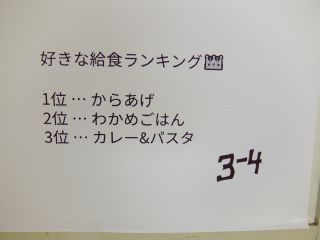 好きな給食ランキング
1位 … からあげ
2位 … わかめごはん
3位 … カレー&パスタ
3-4